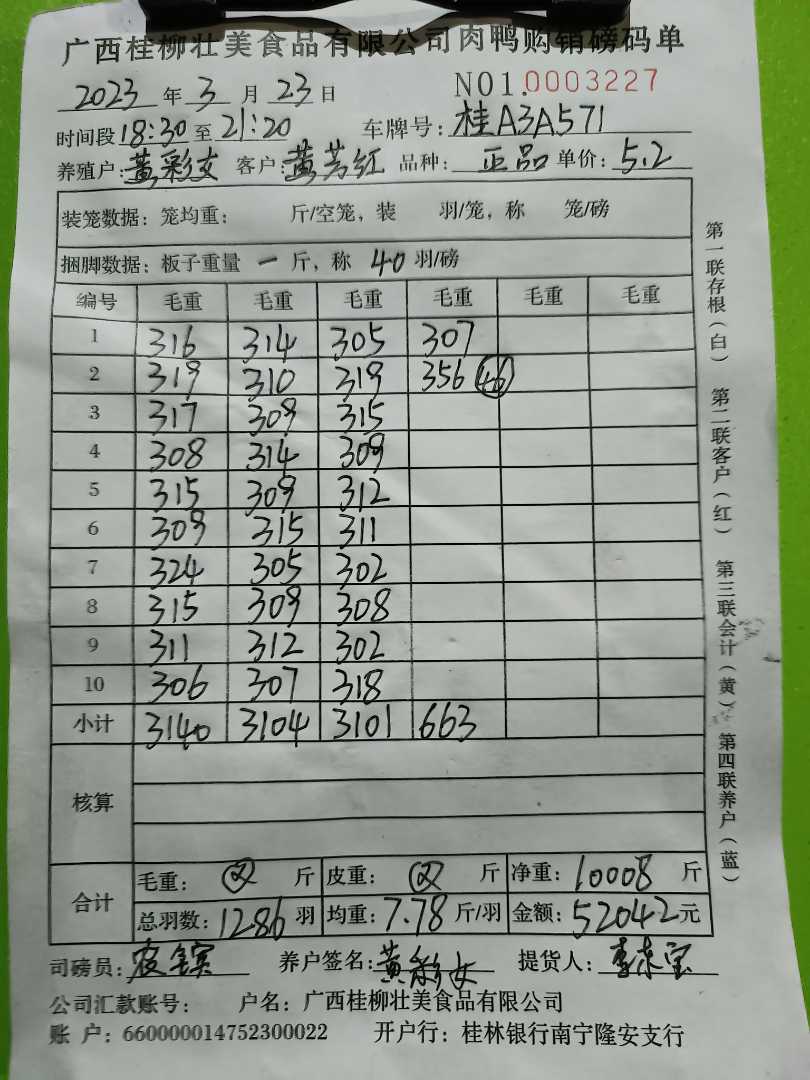 广西桂柳壮美食品有限公司肉鸭购销磅码单
2023 年 3 月 23 日 NO1.0003227
时间段 18:30 至 21:20 车牌号: 桂A3A571
养殖户: 黄彩女 客户: 黄芳红 品种: 正品 单价: 5.2
装笼数据: 笼均重: 斤/空笼, 装 羽/笼, 称 笼/磅
捆脚数据: 板子重量 一 斤, 称 40 羽/磅
编号 毛重 毛重 毛重 毛重 毛重 毛重
1 316 314 305 307
2 319 310 319 356 46
3 317 309 315
4 308 314 309
5 315 309 312
6 309 315 311
7 324 305 302
8 315 309 308
9 311 312 302
10 306 307 318
小计 3140 3104 3101 663
核算
合计
毛重: 斤 皮重: 斤 净重: 10008 斤
总羽数: 1286 羽 均重: 7.78 斤/羽 金额: 52042 元
司磅员: 养户签名: 黄彩女 提货人:
公司汇款账号: 户名: 广西桂柳壮美食品有限公司
账 户: 660000014752300022 开户行: 桂林银行南宁隆安支行
第一联存根(白) 第二联客户(红) 第三联会计(黄) 第四联养户(蓝)